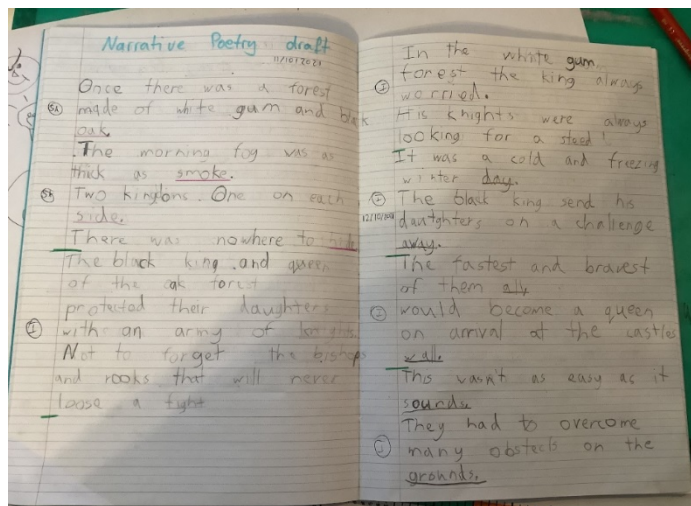 Narrative Poetry draft
11/10/2021
Once there was a forest
made of white gum and black
oak.
The morning fog was as
thick as smoke.
Two kingdons. One on each
side.
There was nowhere to hide
The black king and queen
of the oak forest
protected their daughters
with an army of knights
Not to forget the bishops
and rooks that will never
loose a fight
In the white gum
forest the king always
worried.
His knights were always
looking for a steed!
It was a cold and freezing
winter day.
The black king send his
daughters on a challenge
away.
The fastest and bravest
of them all,
would become a queen
on arrival at the castles
wall.
This wasn't as easy as it
sounds
They had to overcome
many obstecls on the
grounds.